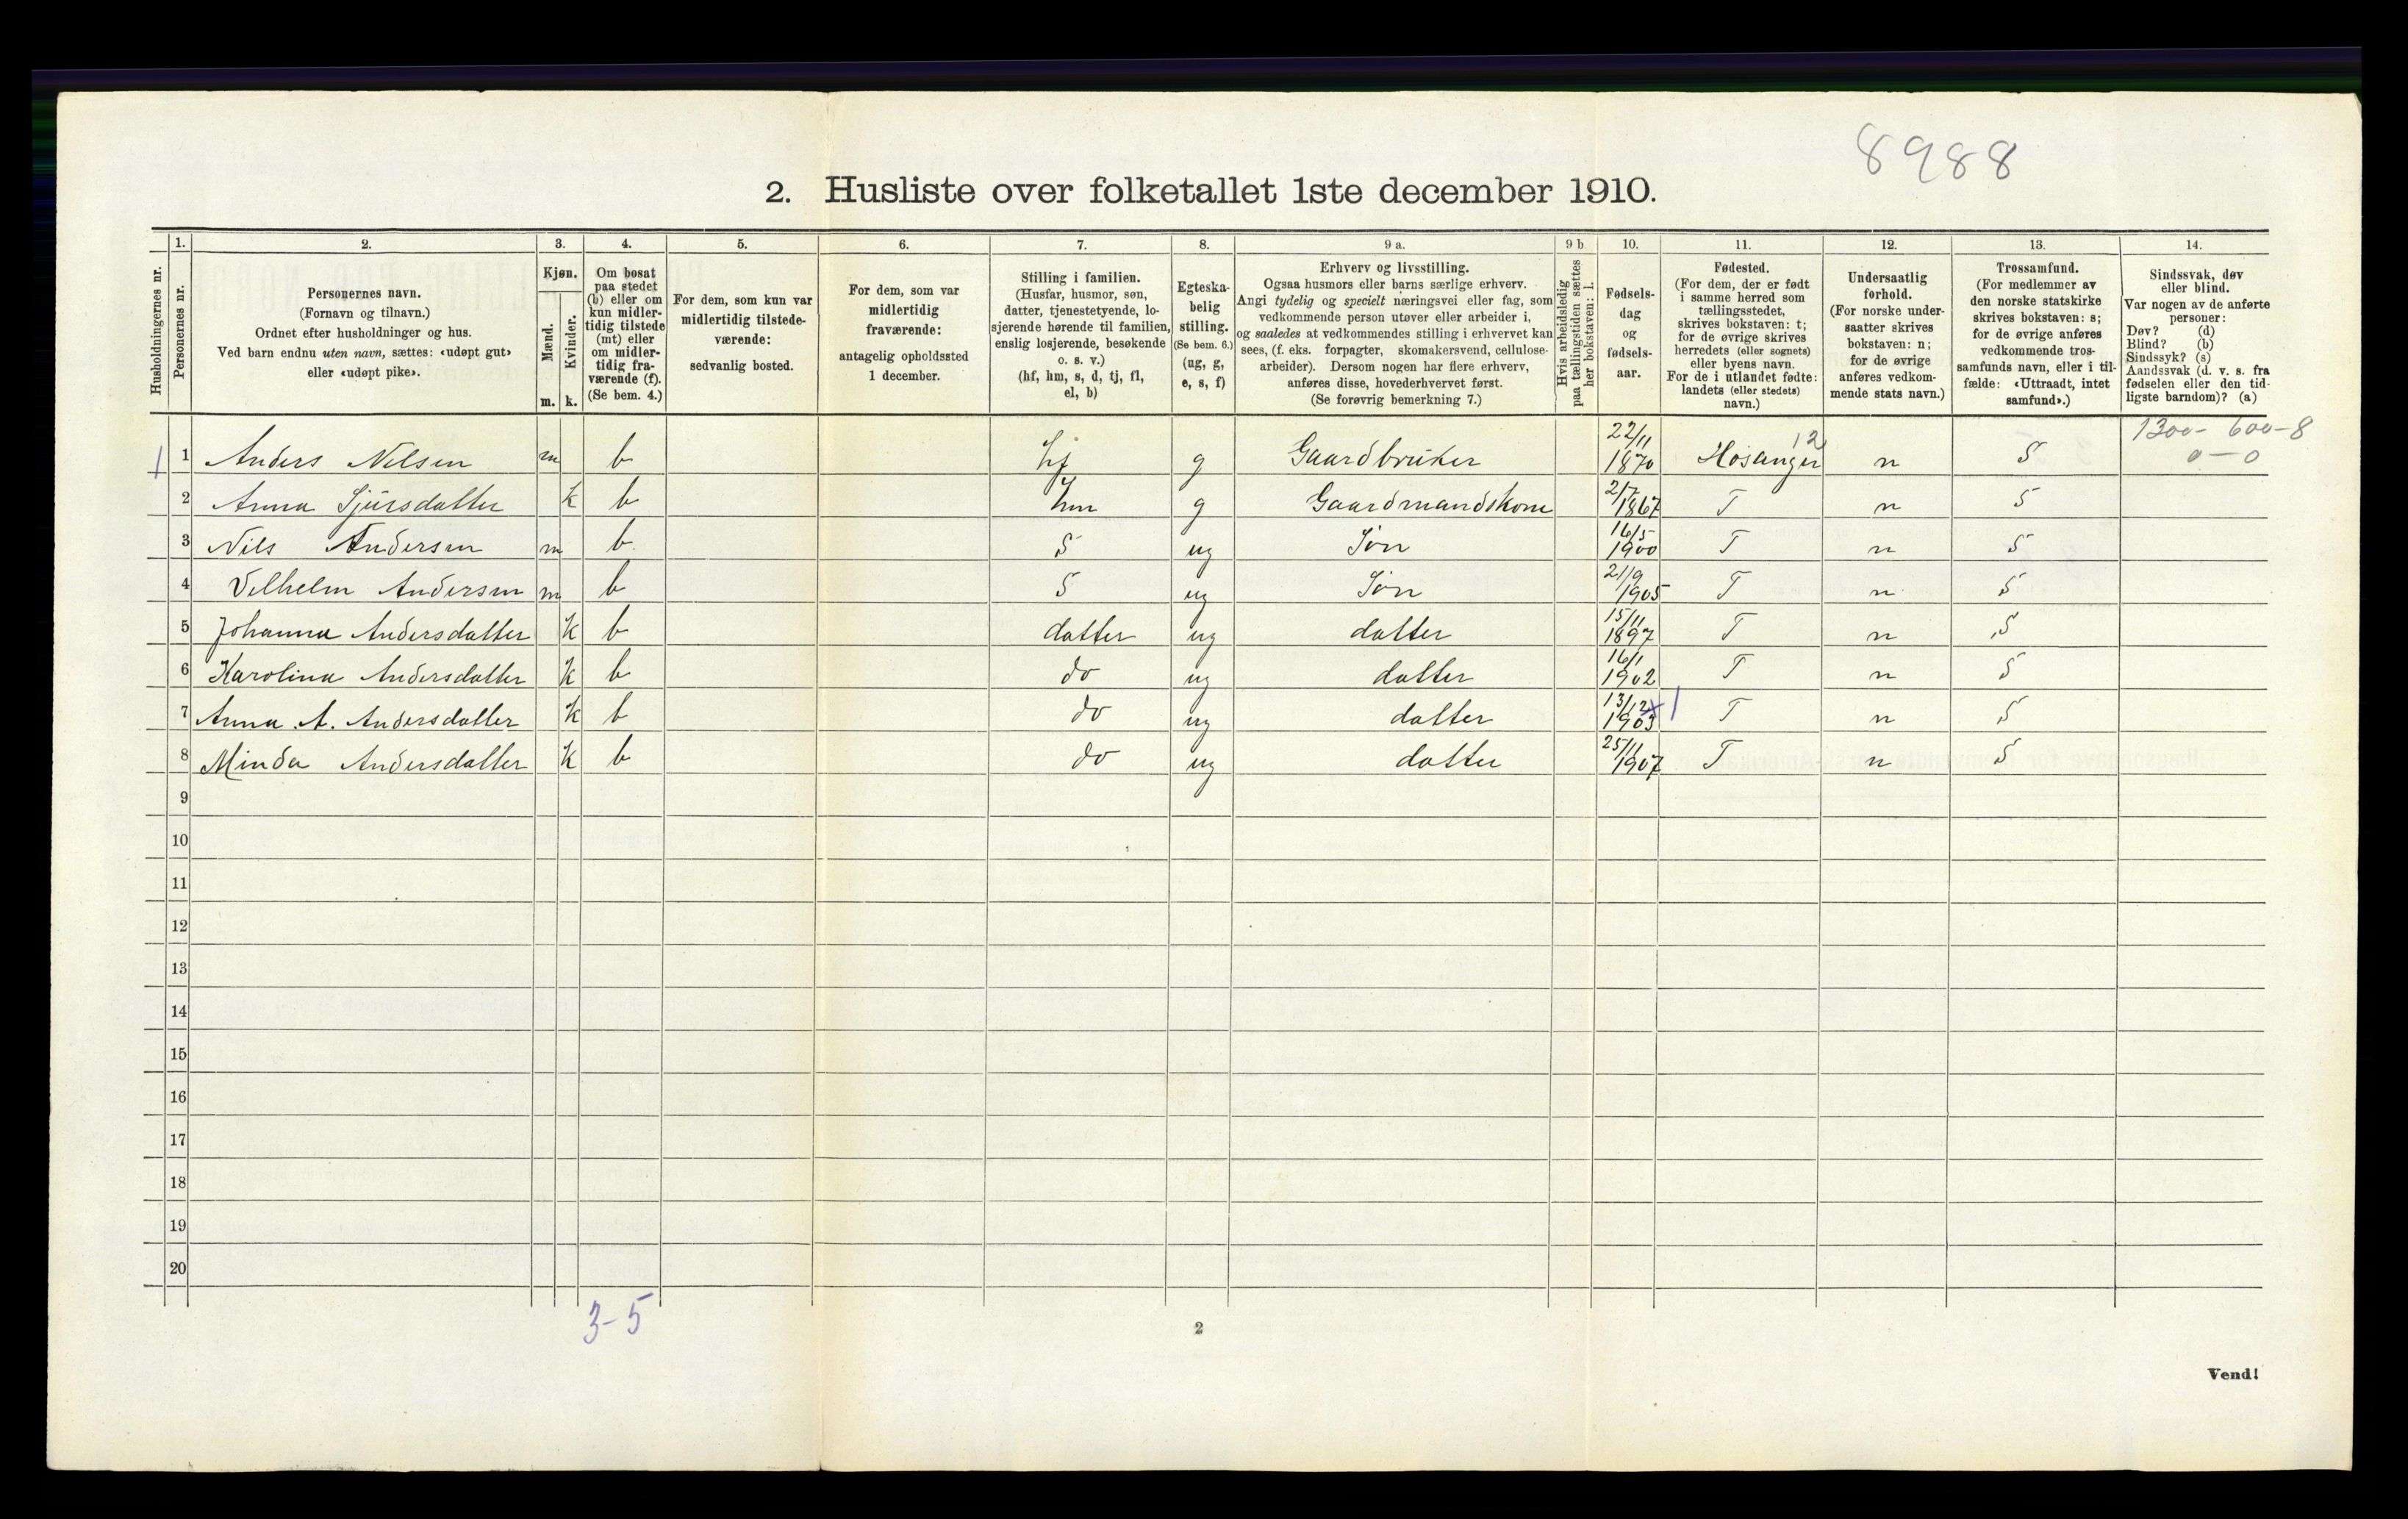 8988
2. Husliste over folketallet 1ste december 1910.
Husholdningernes nr.
1.
Personernes nr.
2.
Personernes navn.
(Fornavn og tilnavn.)
Ordnet efter husholdninger og hus.
Ved barn endnu uten navn, sættes: «udøpt gut»
eller «udøpt pike».
3.
Kjøn.
Mænd.
Kvinder.
m. k.
4.
Om bosat
paa stedet
(b) eller om
kun midler-
tidig tilstede
(mt) eller
om midler-
tidig fra-
værende (f).
(Se bem. 4.)
5.
For dem, som kun var
midlertidig tilstede-
værende:
sedvanlig bosted.
6.
For dem, som var
midlertidig
fraværende:
antagelig opholdssted
1 december.
7.
Stilling i familien.
(Husfar, husmor, søn,
datter, tjenestetyende, lo-
sjerende hørende til familien,
enslig losjerende, besøkende
o. s. v.)
(hf, hm, s, d, tj, fl,
el, b)
8.
Egteska-
belig
stilling.
(Se bem. 6.)
(ug, g,
e, s, f)
9 a.
Erhverv og livsstilling.
Ogsaa husmors eller barns særlige erhverv.
Angi tydelig og specielt næringsvei eller fag, som
vedkommende person utøver eller arbeider i,
og saaledes at vedkommendes stilling i erhvervet kan
sees, (f. eks. forpagter, skomakersvend, cellulose-
arbeider). Dersom nogen har flere erhverv,
anføres disse, hovederhvervet først.
(Se forøvrig bemerkning 7.)
9 b
Hvis arbeidsledig
paa tællingstiden sættes
her bokstaven: l.
10.
Fødsels-
dag
og
fødsels-
aar.
11.
Fødested.
(For dem, der er født
i samme herred som
tællingsstedet,
skrives bokstaven: t;
for de øvrige skrives
herredets (eller sognets)
eller byens navn.
For de i utlandet fødte:
landets (eller stedets)
navn.)
12.
Undersaatlig
forhold.
(For norske under-
saatter skrives
bokstaven: n;
for de øvrige
anføres vedkom-
mende stats navn.)
13.
Trossamfund.
(For medlemmer av
den norske statskirke
skrives bokstaven: s;
for de øvrige anføres
vedkommende tros-
samfunds navn, eller i til-
fælde: «Uttraadt, intet
samfund».)
14.
Sindssvak, døv
eller blind.
Var nogen av de anførte
personer:
Døv? (d)
Blind? (b)
Sindssyk? (s)
Aandssvak (d. v. s. fra
fødselen eller den tid-
ligste barndom)? (a)
1300- 600-8
0-0
1 1 Anders Nilsen m b hf g Gaardbruker 22/11 1870 Hosanger 12 n S
2 Anna Sjursdatter k b hm g Gaardmandskone 2/7 1867 T n S
3 Nils Andersen m b S ug Søn 16/5 1900 T n S
4 Vilhelm Andersen m b S ug Søn 21/9 1905 T n S
5 Johanna Andersdatter k b datter ug datter 15/11 1897 T n S
6 Karolina Andersdatter k b do ug datter 16/1 1902 T n S
7 Anna A. Andersdatter k b do ug datter 13/12 1903 T n S
8 Minda Andersdatter k b do ug datter 25/11 1907 T n S
9
10
11
12
13
14
15
16
17
18
19
20
3-5
2
Vend!